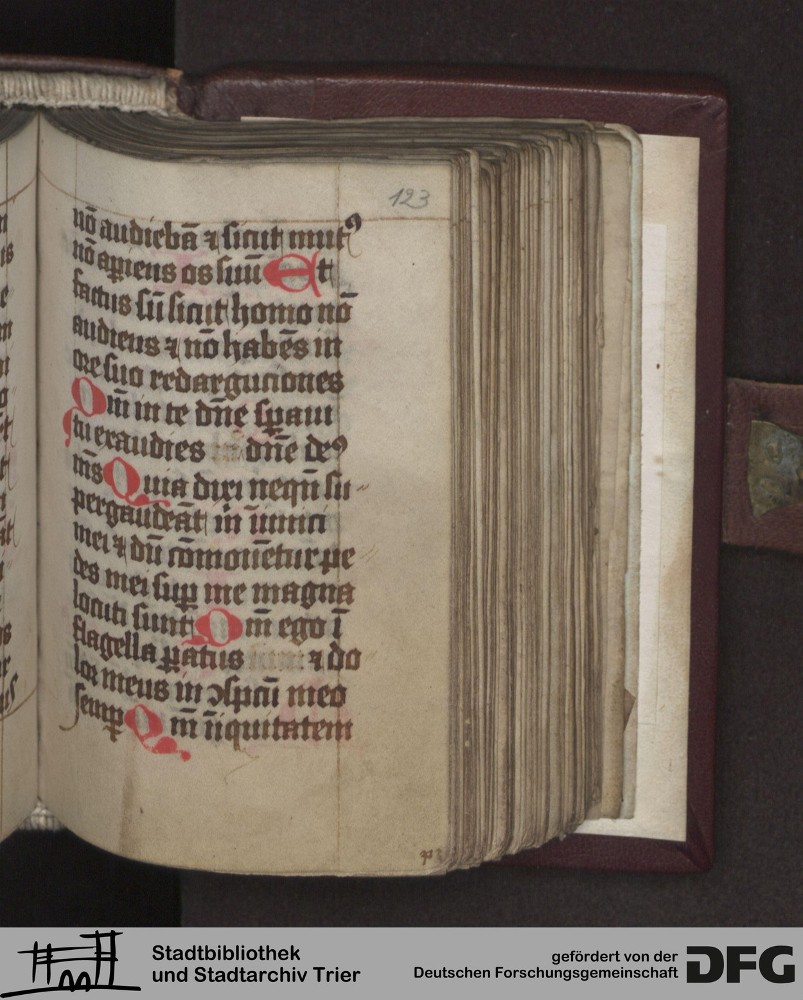 123
nō audiebā ⁊ sicut mutꝰ
nō apīens os suū Et
factus sū sicut homo nō
audiens ⁊ nō habēs in
ore suo redarguciones
Qm̄ in te dn̄e sꝑaui
tu exaudies dn̄e deꝰ
m̄s Quia dixi neqn̄ su
pergaudeāt in īmici
mei ⁊ dū cōmouētur pe
des mei suꝑ me magna
locuti sunt Qm̄ ego ī
flagella ꝑatus ⁊ do
lor meus in ↄspcū meo
semꝑ Qm̄ īiquitatem
Stadtbibliothek
und Stadtarchiv Trier
gefördert von der
Deutschen Forschungsgemeinschaft
DFG